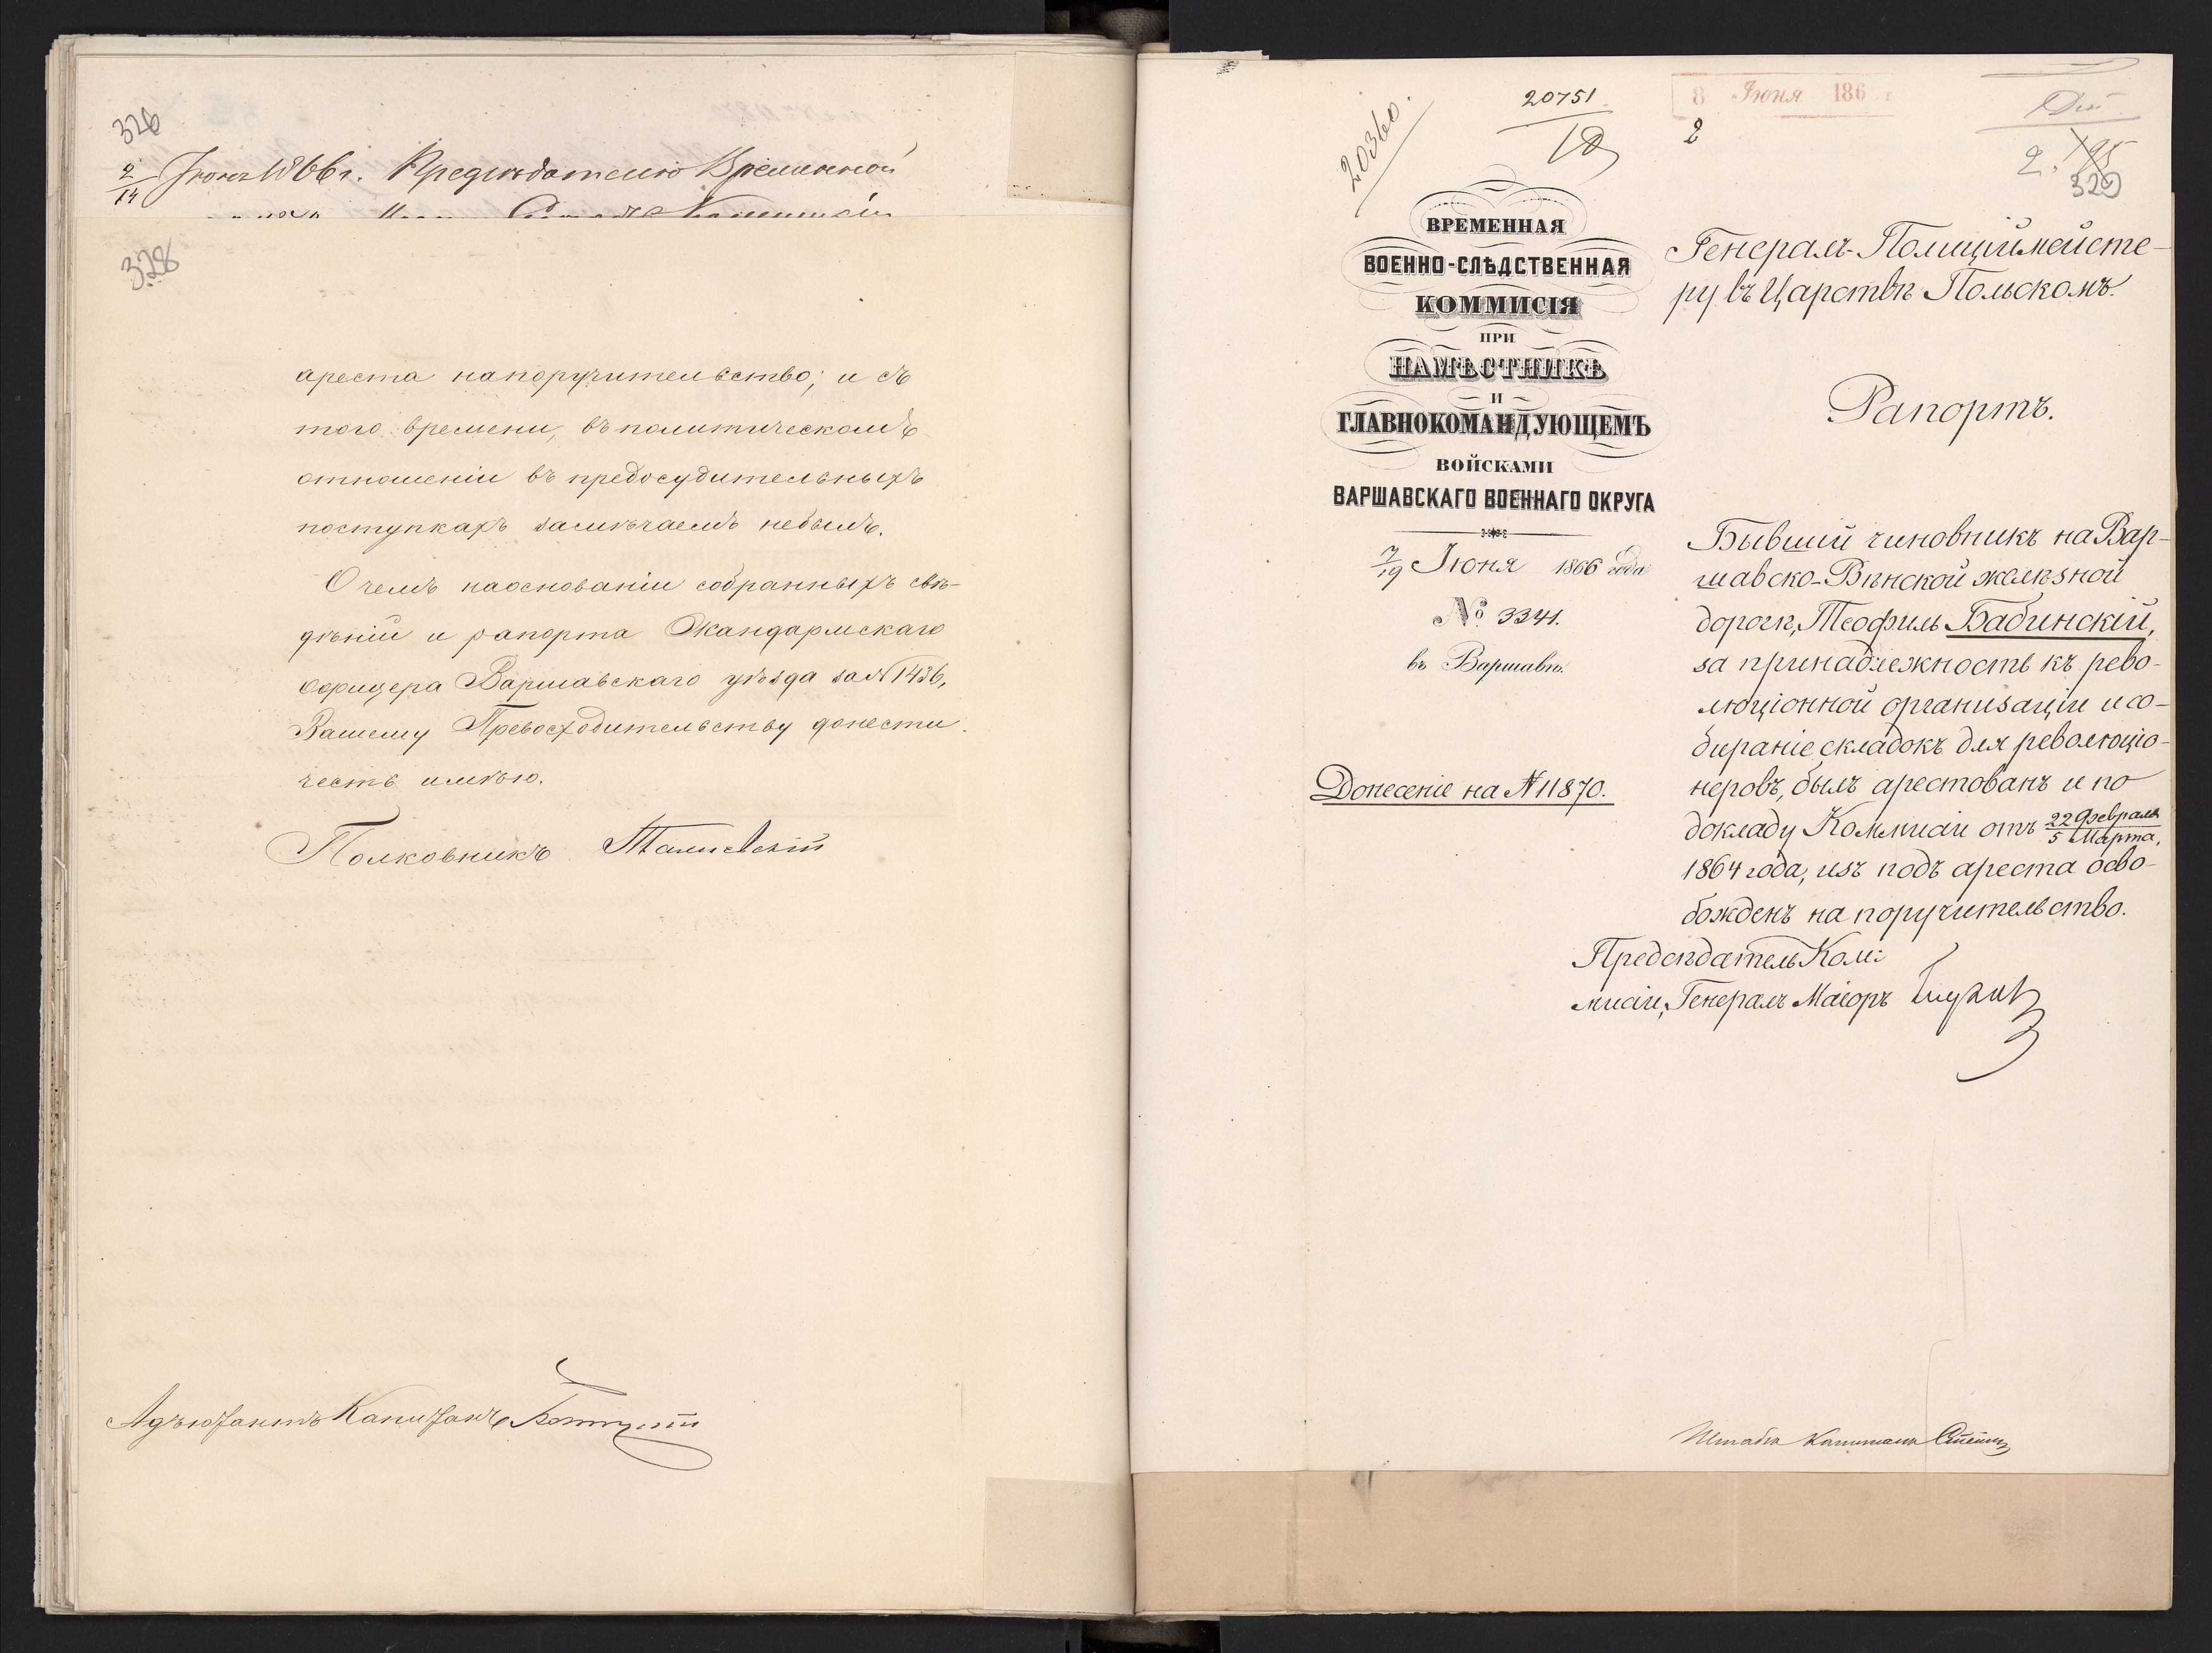 326
2/14 Іюня 1866 г. Предсѣдателю Временной
328
ареста на поручительство; и съ
того времени, въ политическомъ
отношеніи въ предосудительныхъ
поступкахъ замѣчаемъ небылъ.
О чемъ на основаніи собранныхъ свѣ-
дѣній и рапорта Жандармскаго
Офицера Варшавскаго уѣзда за N 1436,
Вашему Превосходительству донести
честь имѣю.
Полковникъ
Адъютантъ Капитанъ
20360.
20751
18
8 Іюня 186
2
2. 195
329
ВРЕМЕННАЯ
ВОЕННО-СЛѢДСТВЕННАЯ
КОММИСІЯ
ПРИ
НАМѢСТНИКѢ
И
ГЛАВНОКОМАНДУЮЩЕМЪ
ВОЙСКАМИ
ВАРШАВСКАГО ВОЕННАГО ОКРУГА
7/19 Іюня 1866 года
№ 3341.
въ Варшавѣ.
Донесеніе на N 11870.
Генералъ-Полиціймейсте-
ру въ Царствѣ Польскомъ.
Рапортъ.
Бывшій чиновникъ на Вар-
шавско-Вѣнской желѣзной
дорогѣ, Теофиль Бабинскій,
за принадлежность къ рево-
люціонной организаціи и со-
бираніе складокъ для революціо-
неровъ, былъ арестованъ и по
докладу Коммисіи отъ 22 Февраля/5 Марта,
1864 года, изъ подъ ареста осво-
божденъ на поручительство.
Предсѣдатель Ком-
мисіи, Генералъ Маіоръ
Штабсъ Капитанъ